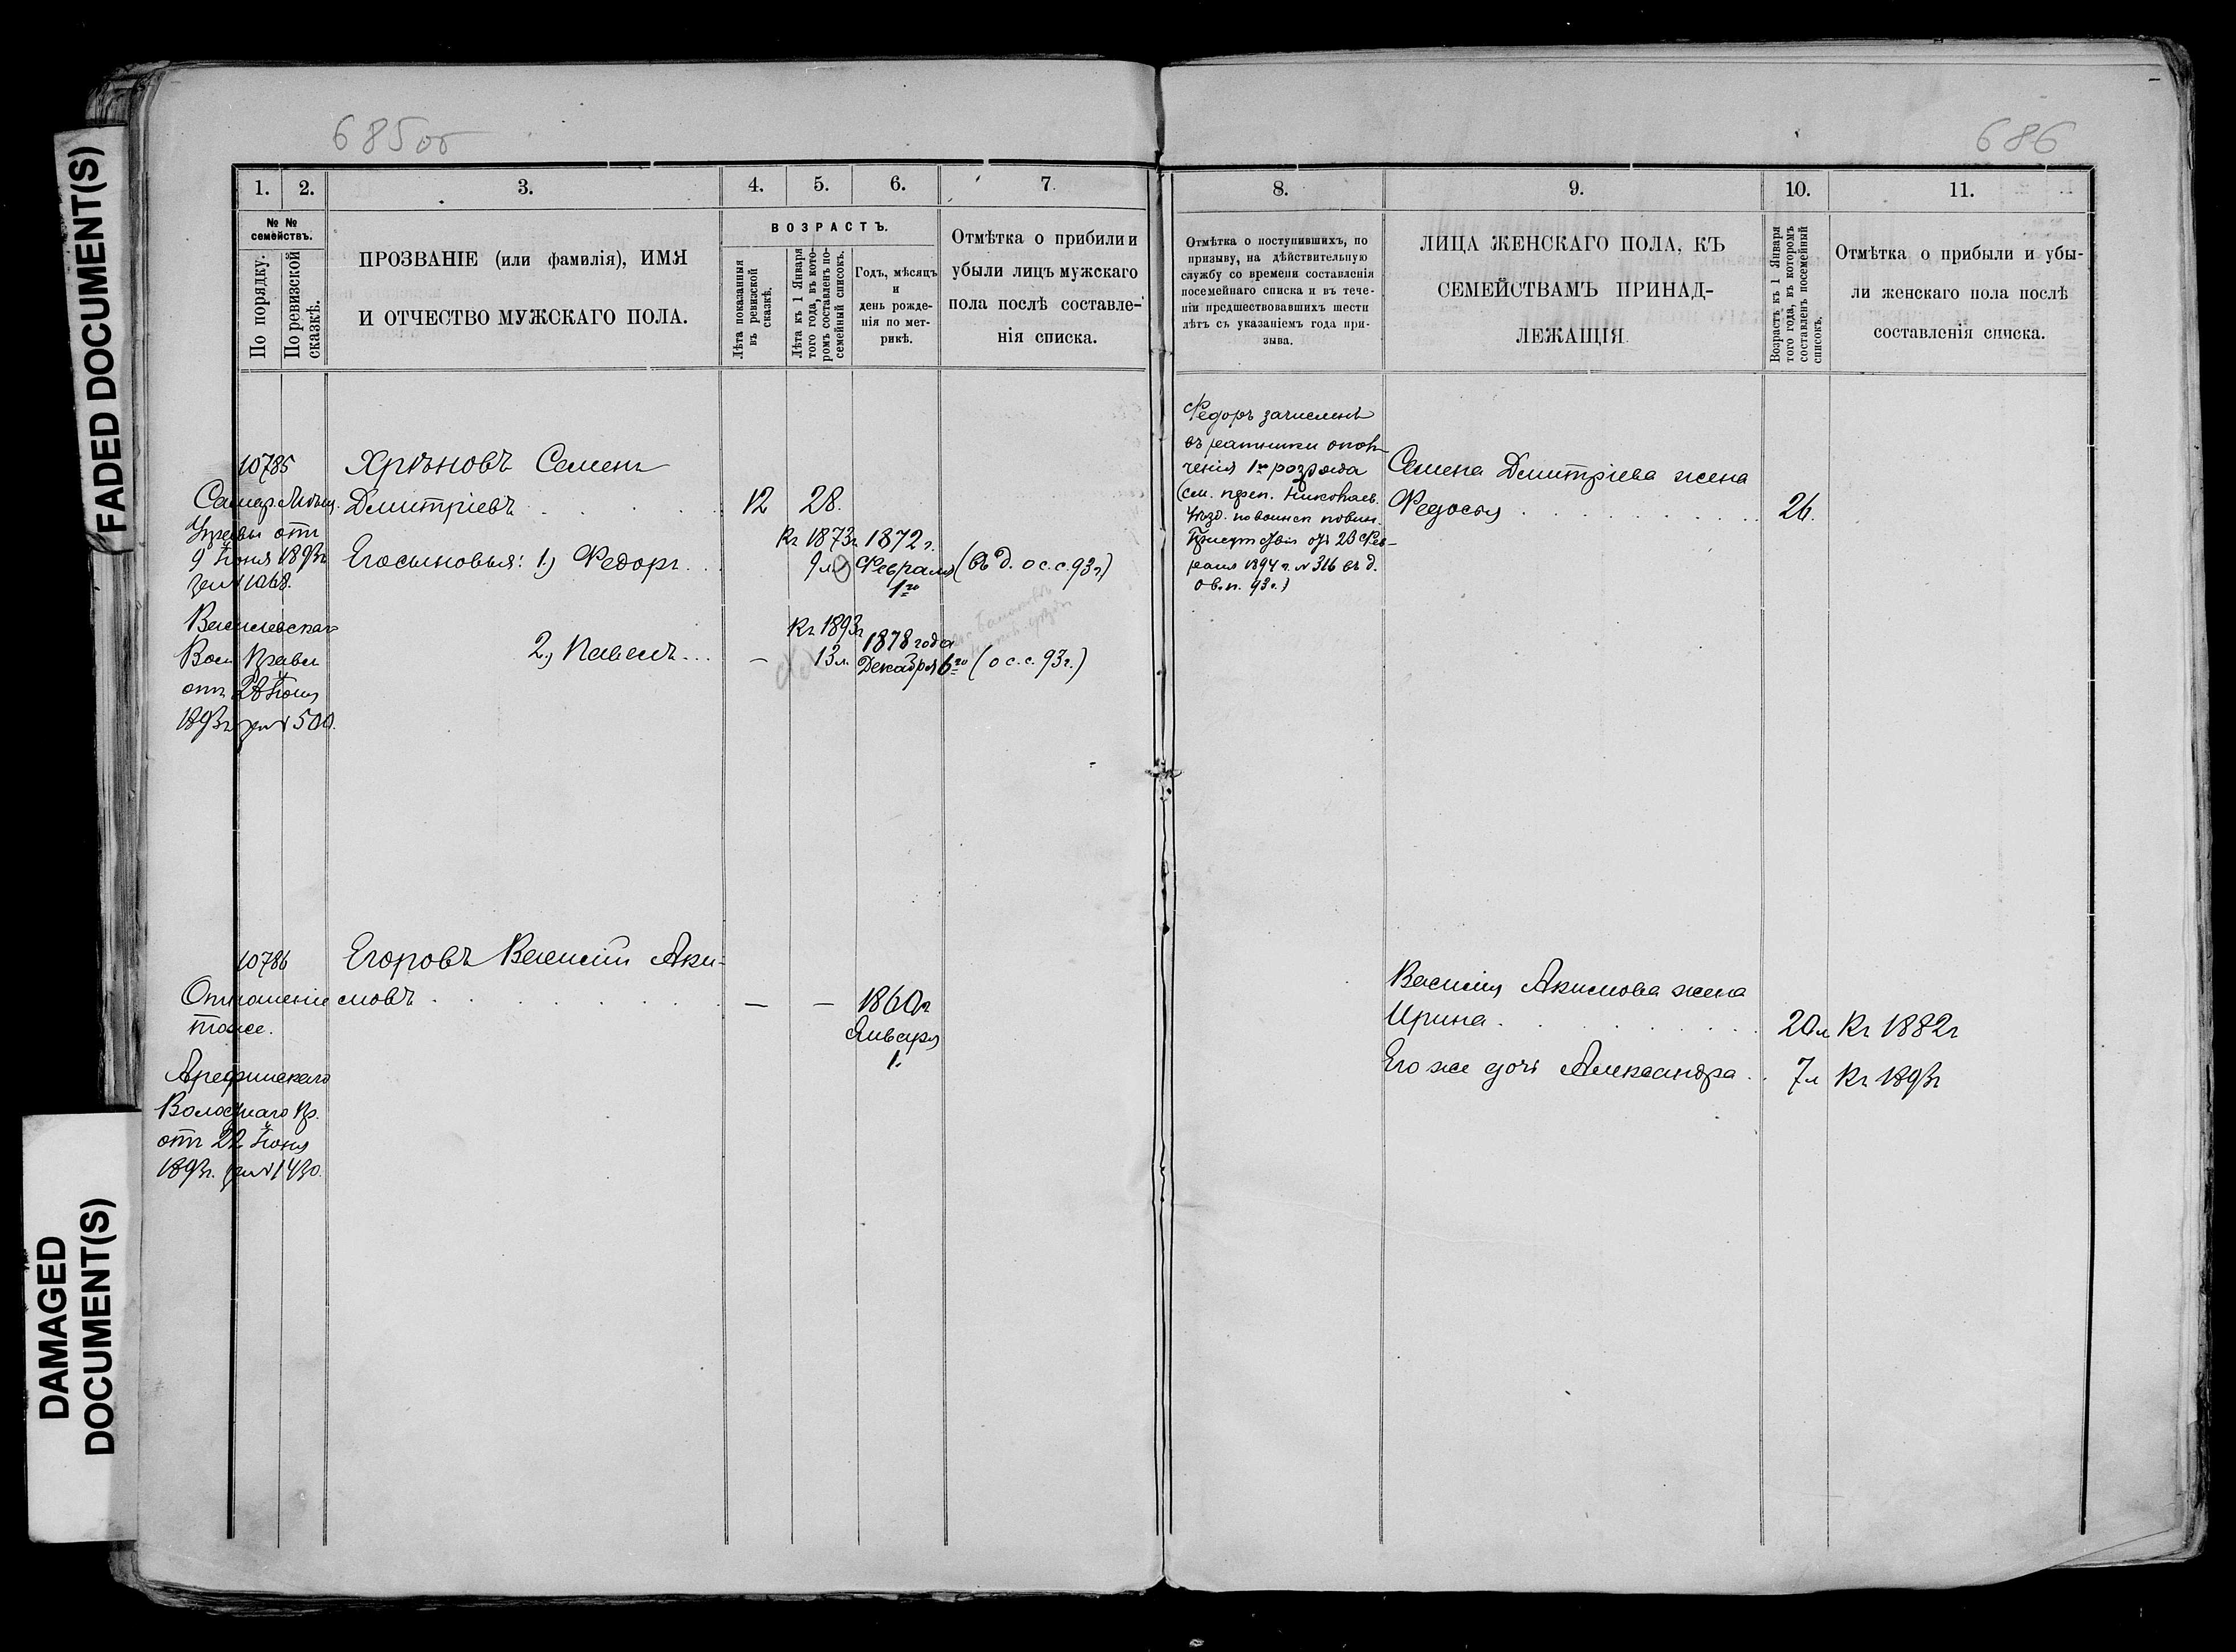 FADED DOCUMENT(S)
DAMAGED
DOCUMENT(S)
685об
1. 2. 3. 4. 5. 6. 7.
№ №
семействъ.
По порядку.
По ревизской
сказкѣ.
ПРОЗВАНІЕ (или фамилія), ИМЯ
И ОТЧЕСТВО МУЖСКАГО ПОЛА.
ВОЗРАСТЪ.
Лѣта показанныя
въ ревизской
сказкѣ.
Лѣта къ 1 Января
того года, въ кото-
ромъ составленъ по-
семейный списокъ.
Годъ, мѣсяцъ
и
день рожде-
нія по мет-
рикѣ.
Отмѣтка о прибыли и
убыли лицъ мужскаго
пола послѣ составле-
нія списка.
10785
Самар. Мѣщ.
Управы отъ
9 Іюня 1893г
за № 1068.
Воли. Правл
отъ 28 Іюня
1893г за № 500.
Хрѣновъ Семенъ
Дмитріевъ 12 28.
Его сыновья: 1.) Федоръ
Къ 1873г
9 л.
1872 г.
Февраля
1го
(въ д. о с. с. 93 г.)
2.) Павелъ —
Къ 1893г
13 л.
1878 года
Декабря 6го
(о с. с. 93 г.)
10786
Отношеніе
тоже.
Арефинскаго
Волостнаго Пр.
отъ 22 Іюня
1893г. за № 1430.
Егоровъ Василій Аки-
мовъ — — 1860г
Января
1.
686
8. 9. 10. 11.
Отмѣтка о поступившихъ, по
призыву, на дѣйствительную
службу со времени составленія
посемейнаго списка и въ тече-
ніи предшествовавшихъ шести
лѣтъ съ указаніемъ года при-
зыва.
ЛИЦА ЖЕНСКАГО ПОЛА, КЪ
СЕМЕЙСТВАМЪ ПРИНАД-
ЛЕЖАЩІЯ.
Возрастъ къ 1 Января
того года, въ которомъ
составленъ посемейный
списокъ.
Отмѣтка о прибыли и убы-
ли женскаго пола послѣ
составленія списка.
Федоръ зачисленъ
въ ратники опол-
ченія 1го разряда
(см. преп. Николаев.
Уѣзд. по воинск повин.
Присутствія отъ 23 Фев-
раля 1894 г. № 316 въ д.
о в. п. 93 г.)
Семена Дмитріева жена
Федосья 26.
Василія Акимова жена
Ирина 20л Къ 1882г
Его же дочь Александра 7л Къ 1893г